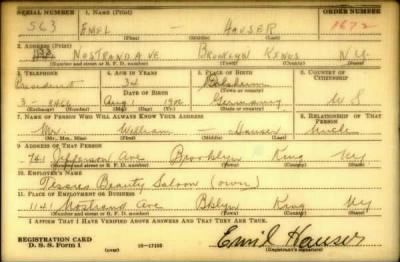 SERIAL NUMBER 1. NAME (Print) ORDER NUMBER
563 EMEL — HAUSER 1672
(First) (Middle) (Last)
2. ADDRESS (Print)
NOSTRAND AVE BROOKLYN KINGS N.Y.
(Number and street or R. F. D. number) (Town) (County) (State)
3. TELEPHONE 4. AGE IN YEARS 5. PLACE OF BIRTH 6. COUNTRY OF CITIZENSHIP
President 34
DATE OF BIRTH (Town or county)
3- Aug 1 Germany U S
(Exchange) (Number) (Mo.) (Day) (Yr.) (State or country)
7. NAME OF PERSON WHO WILL ALWAYS KNOW YOUR ADDRESS 8. RELATIONSHIP OF THAT PERSON
Mr. William — Hauser Uncle
(Mr., Mrs., Miss) (First) (Middle) (Last)
9. ADDRESS OF THAT PERSON
741 Jefferson Ave Brooklyn King NY
(Number and street or R. F. D. number) (Town) (County) (State)
10. EMPLOYER'S NAME
Beauty Saloon (own)
11. PLACE OF EMPLOYMENT OR BUSINESS
1141 Nostrand Ave Bklyn King NY
(Number and street or R. F. D. number) (Town) (County) (State)
I AFFIRM THAT I HAVE VERIFIED ABOVE ANSWERS AND THAT THEY ARE TRUE.
REGISTRATION CARD
D. S. S. Form 1 16—17105 Emil Hauser
(Registrant's signature)